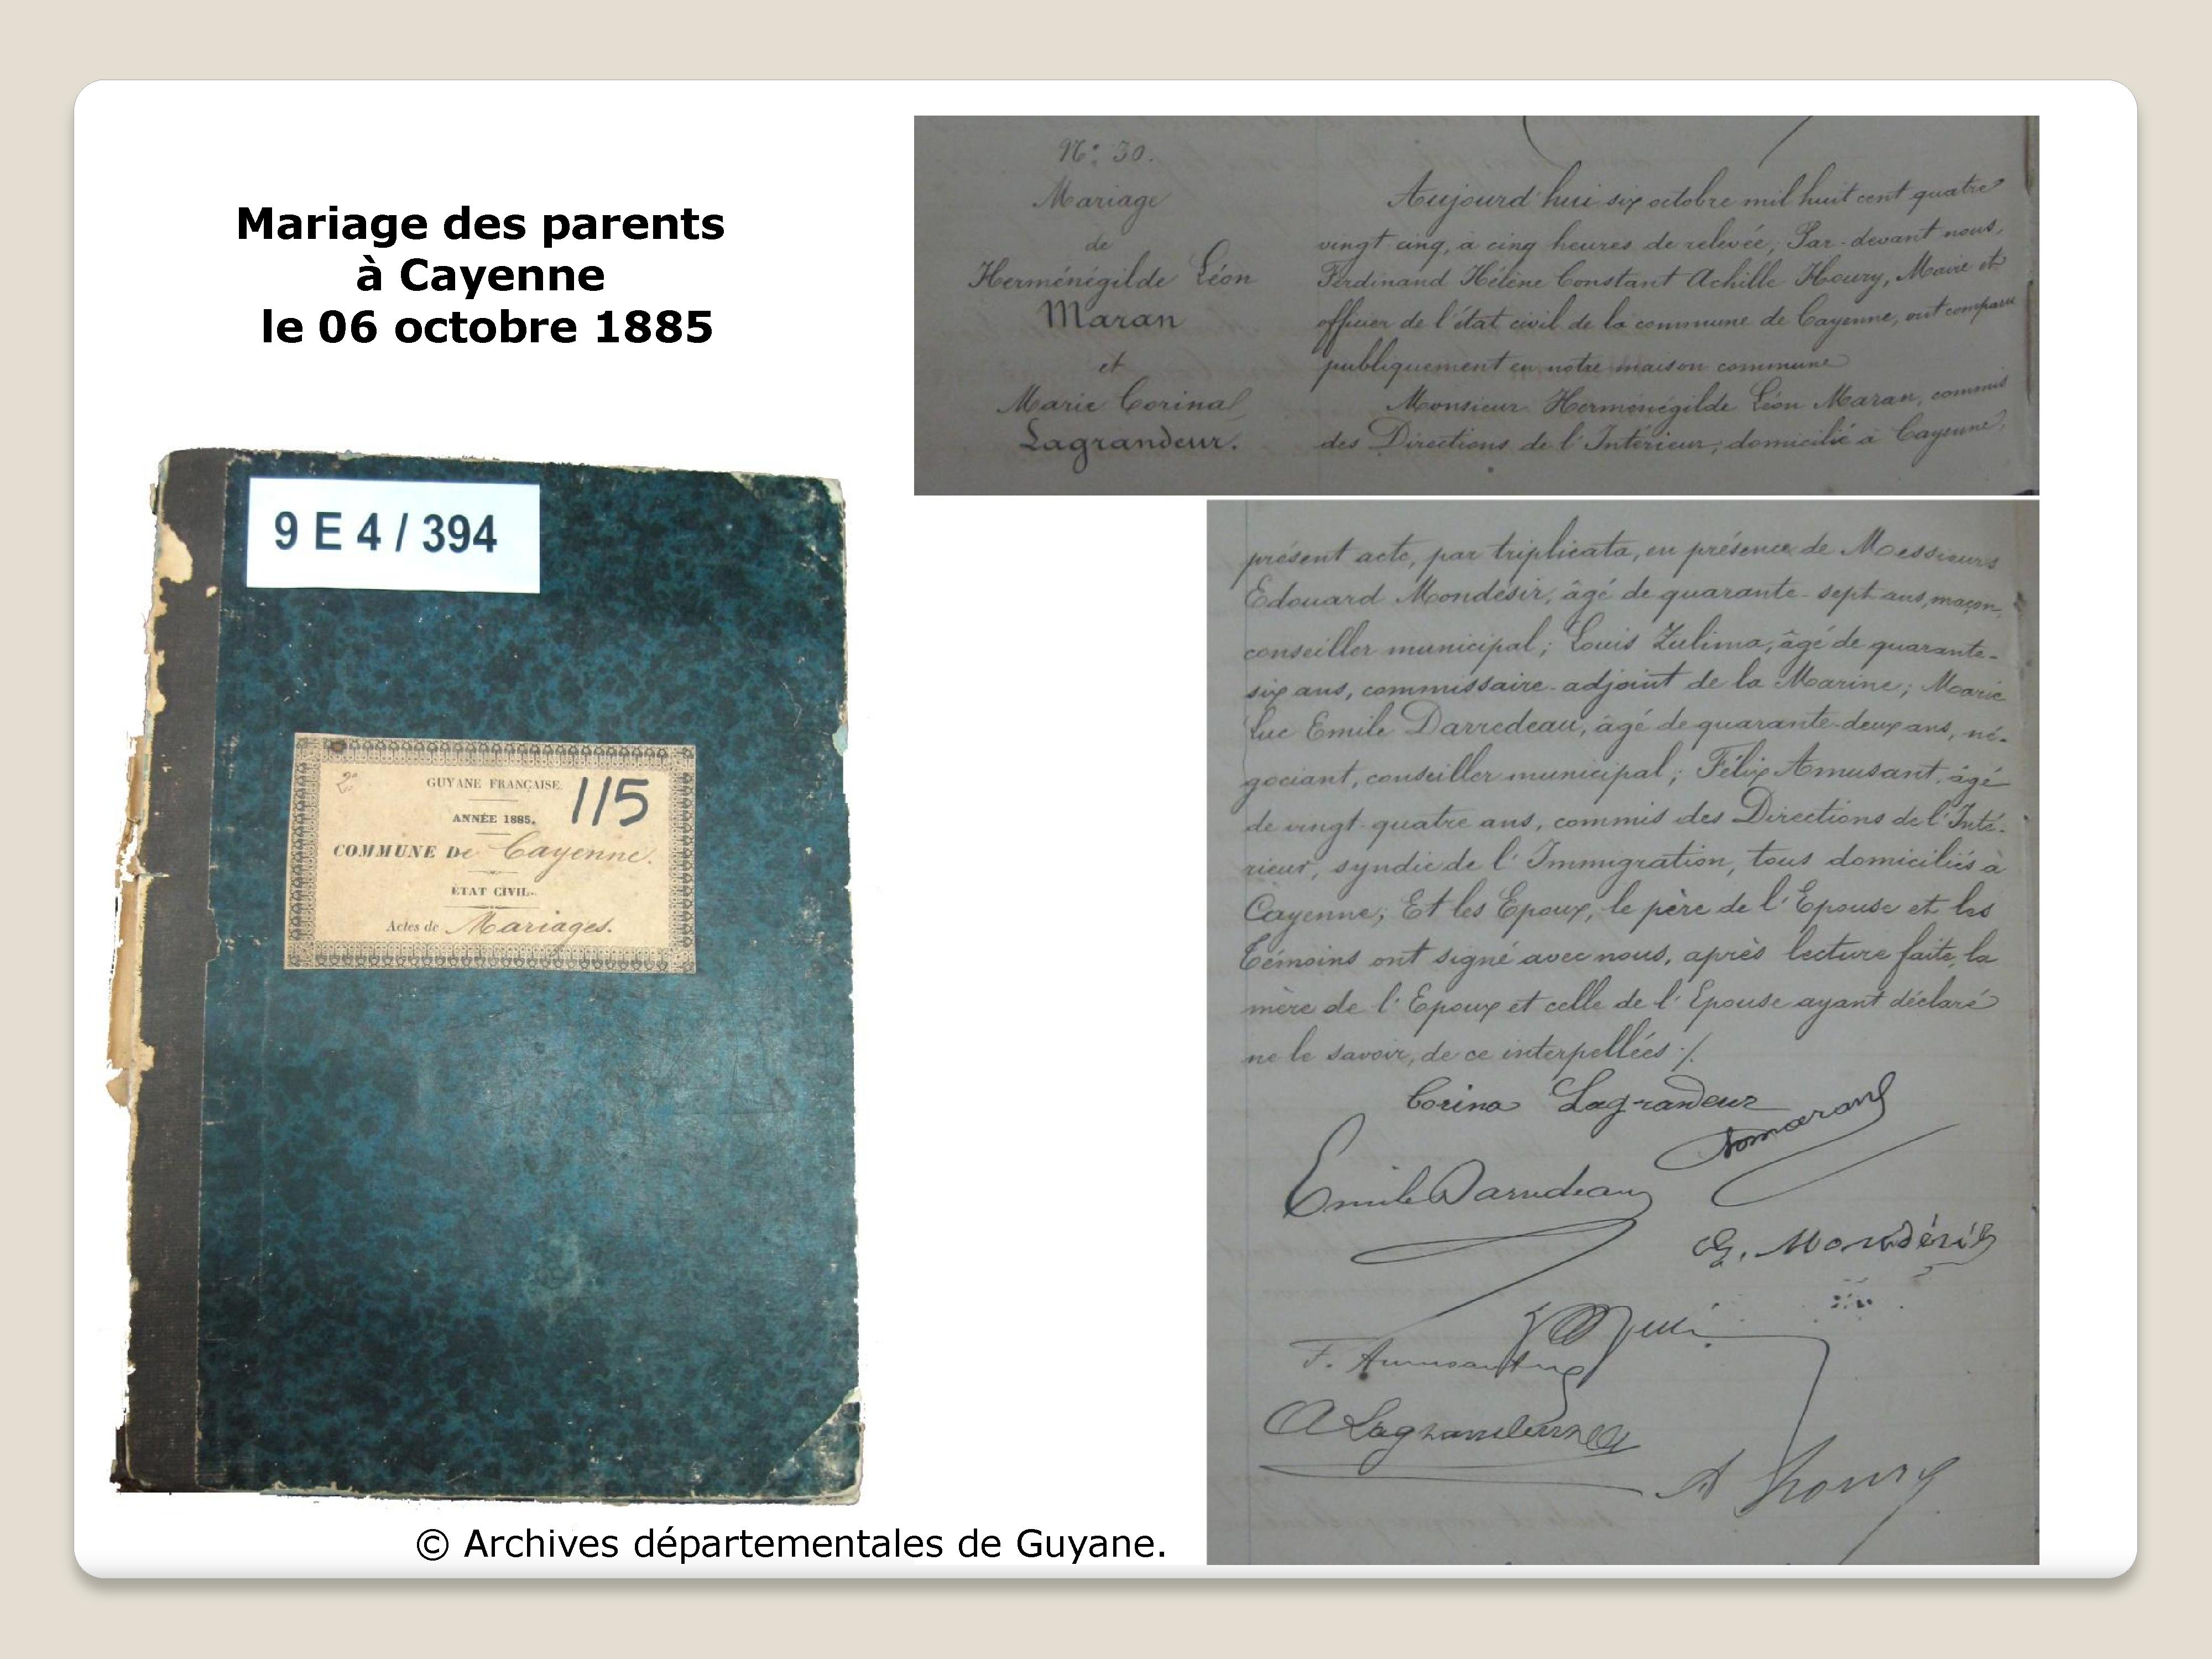 Mariage des parents
à Cayenne
le 06 octobre 1885
9 E 4 / 394
2e
GUYANE FRANÇAISE.
115
ANNÉE 1885.
COMMUNE DE Cayenne.
ÉTAT CIVIL.
Actes de Mariages.
© Archives départementales de Guyane.
N° 30.
Mariage
de
Herménégilde Léon
Maran
et
Marie Corina
Lagrandeur.
Aujourd'hui six octobre mil huit cent quatre
vingt cinq, à cinq heures de relevée, Par-devant nous,
Ferdinand Hélène Constant Achille Houry, Maire et
officier de l'état civil de la commune de Cayenne, ont comparu
publiquement en notre maison commune
Monsieur Herménégilde Léon Maran, commis
des Directions de l'Intérieur, domicilié à Cayenne,
présent acte, par triplicata, en présence de Messieurs
Edouard Mondésir, âgé de quarante-sept ans, maçon,
conseiller municipal; Louis Zulima, âgé de quarante-
six ans, commissaire-adjoint de la Marine; Marie
Luc Emile Darredeau, âgé de quarante-deux ans, né-
gociant, conseiller municipal; Félix Amusant, âgé
de vingt-quatre ans, commis des Directions de l'Inté-
rieur, syndic de l'Immigration, tous domiciliés à
Cayenne; Et les Epoux, le père de l'Epouse et les
Témoins ont signé avec nous, après lecture faite, la
mère de l'Epoux et celle de l'Epouse ayant déclaré
ne le savoir, de ce interpellées ./.
Corina Lagrandeur
Emile Darredeau
E. Mondésir
F. Amusant
A Lagrandeur
A Houry